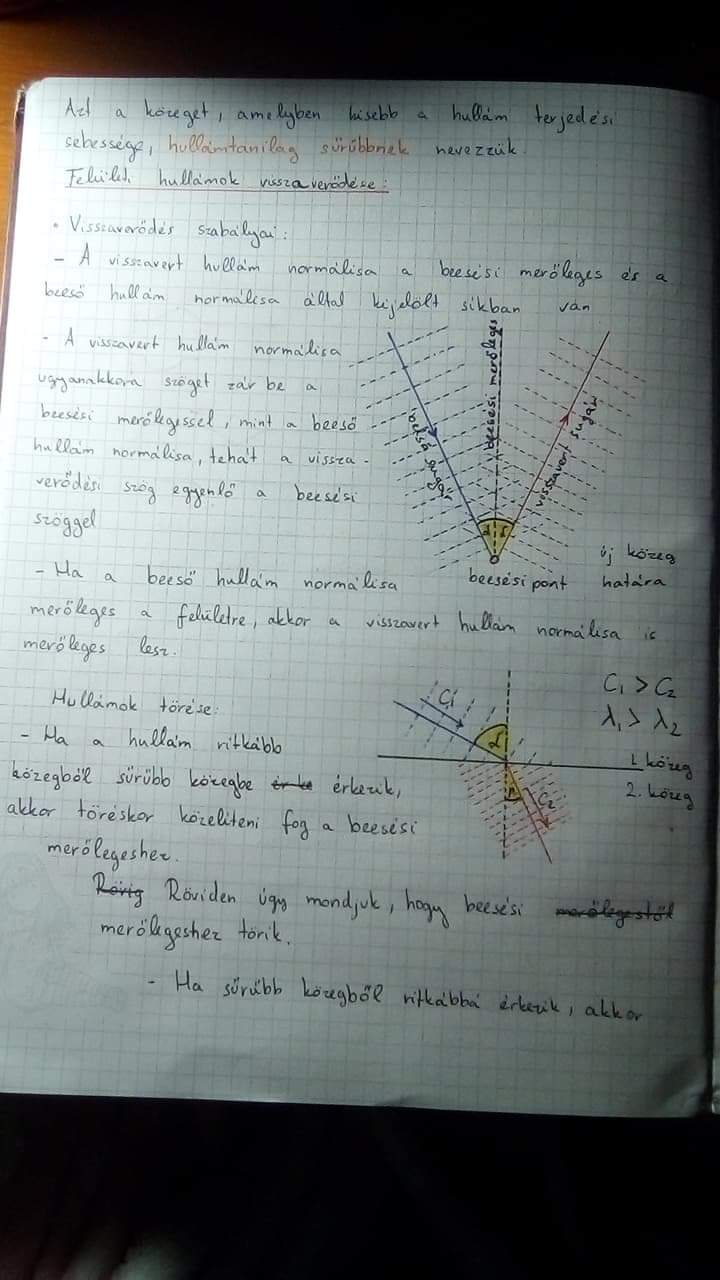 Azt a közeget, amelyben kisebb a hullám terjedési
sebessége, hullámtanilag sűrűbbnek nevezzük.
Felületi hullámok visszaverődése:
• Visszaverődés szabályai:
- A visszavert hullám normálisa a beesési merőleges és a
beeső hullám normálisa által kijelölt síkban ván
- A visszavert hullám normálisa
ugyanakkora szöget zár be a
beesési merőlegessel, mint a beeső
hullám normálisa, tehát a vissza-
verődési szög egyenlő a beesési
szöggel
beeső sugár
beesési merőleges
visszavert sugár
beesési pont
új közeg
határa
- Ha a beeső hullám normálisa
merőleges a felületre, akkor a visszavert hullám normálisa is
merőleges lesz.
Hullámok törése:
- Ha a hullám ritkább
közegből sűrűbb közegbe ér ke érkezik,
akkor töréskor közelíteni fog a beesési
merőlegeshez.
C₁
α
C₂
C₁ > C₂
λ₁ > λ₂
1. közeg
2. közeg
Rövig Röviden úgy mondjuk, hogy beesési merőlegestől
merőlegeshez törik.
- Ha sűrűbb közegből ritkábbá érkezik, akkor